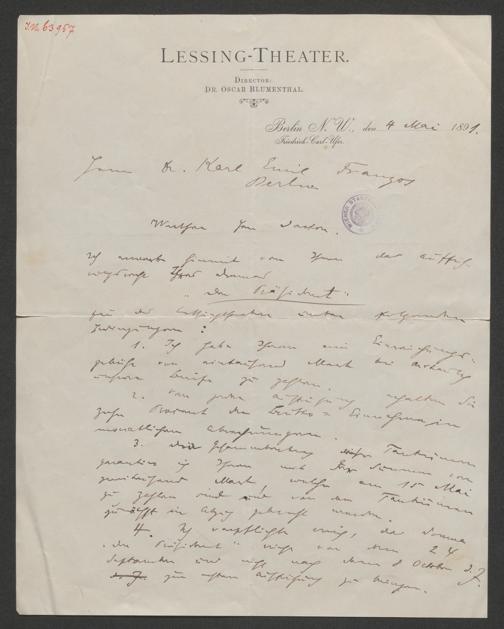 I.N. 63957
LESSING-THEATER.
DIRECTOR:
DR. OSCAR BLUMENTHAL.
Berlin N. W., den 4 Mai 1891.
Friedrich-Carl-Ufer.
Herrn Dr. Karl Emil Franzos
Berlin
Werther Herr Doctor.
Ich erwerbe hiermit von Ihnen das Auffüh-
rungsrecht Ihres Dramas
"Der Präsident"
für das Lessingtheater unter folgenden
Bedingungen:
1. Ich habe Ihnen eine Einreichungs-
gebühr von eintausend Mark bei
zu zahlen.
2. Von jeder Aufführung erhalten Sie
zehn Procent der Brutto-Einnahme, in
monatlichen Abrechnungen.
3. Tantièmen
garantire ich Ihnen mit der Summe von
zweitausend Mark, welche am 15 Mai
zu zahlen sind und von den Tantièmen
zunächst in Abzug gebracht werden.
4. Ich verpflichte mich, das Drama
"Der Präsident" nicht vor dem 24
September und nicht nach dem 8 October d. J.
zur ersten Aufführung zu bringen.